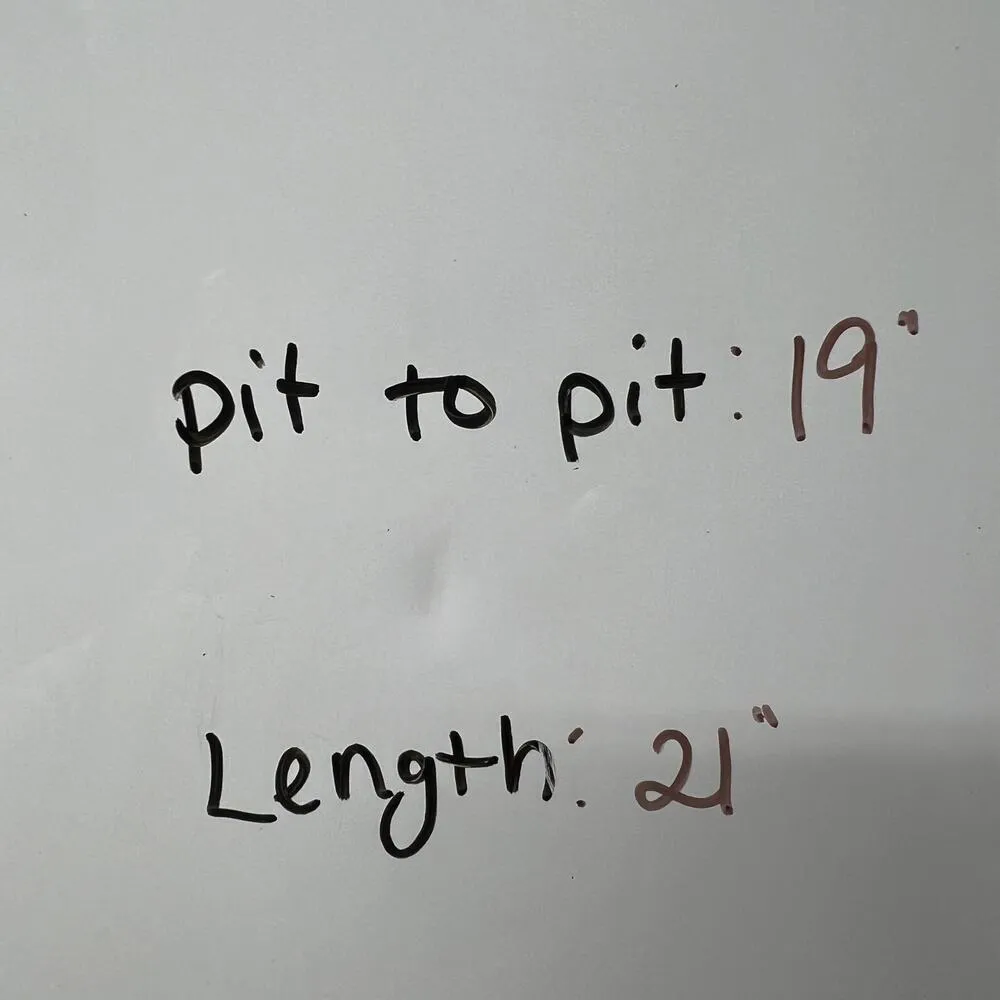 pit to pit: 19"
Length: 21"